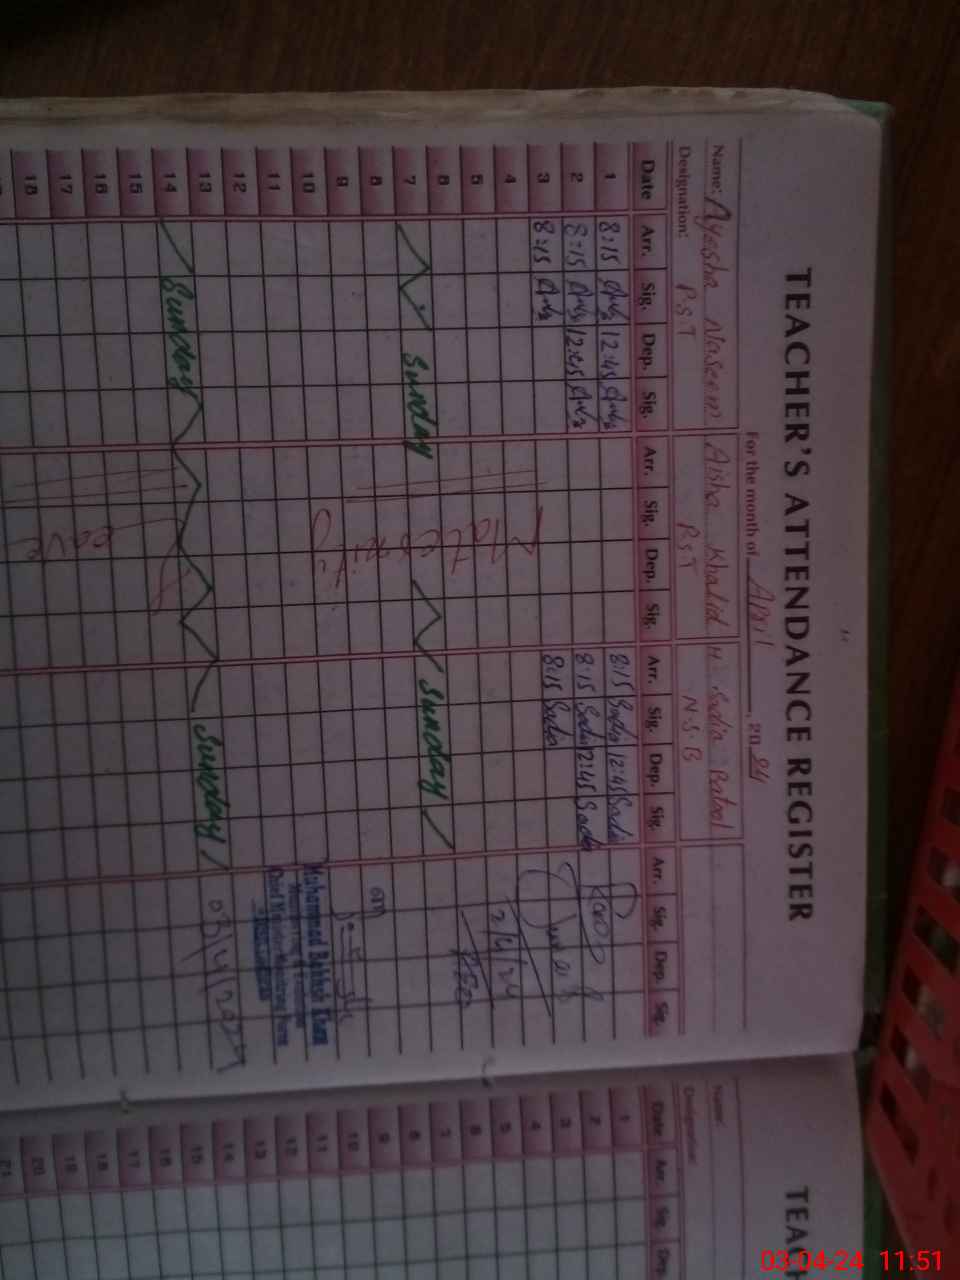 TEACHER'S ATTENDANCE REGISTER
For the month of April, 2024
Name: Ayesha Naseem Aisha Khalid H. Sadia Batool
Designation: P.S.T P.S.T N.S.B
Date Arr. Sig. Dep. Sig. Arr. Sig. Dep. Sig. Arr. Sig. Dep. Sig. Arr. Sig. Dep. Sig.
1 8:15 12:45 8:15 Sadia 12:45 Sadia
2 8:15 12:45 8:15 Sadia 12:45 Sadia
3 8:15 8:15 Sadia
4 Maternity
5 2/4/24
6
7 Sunday Sunday
8
9
10 Muhammad Bakhsh
11
12
13 03/4/2024
14 Sunday Leave Sunday
15
16
17
18
TEAC
Name:
Designation:
Date Arr. Sig. Dep.
1
2
3
4
5
6
7
8
9
10
11
12
13
14
15
16
17
18
19
20
21
03-04-24 11:51